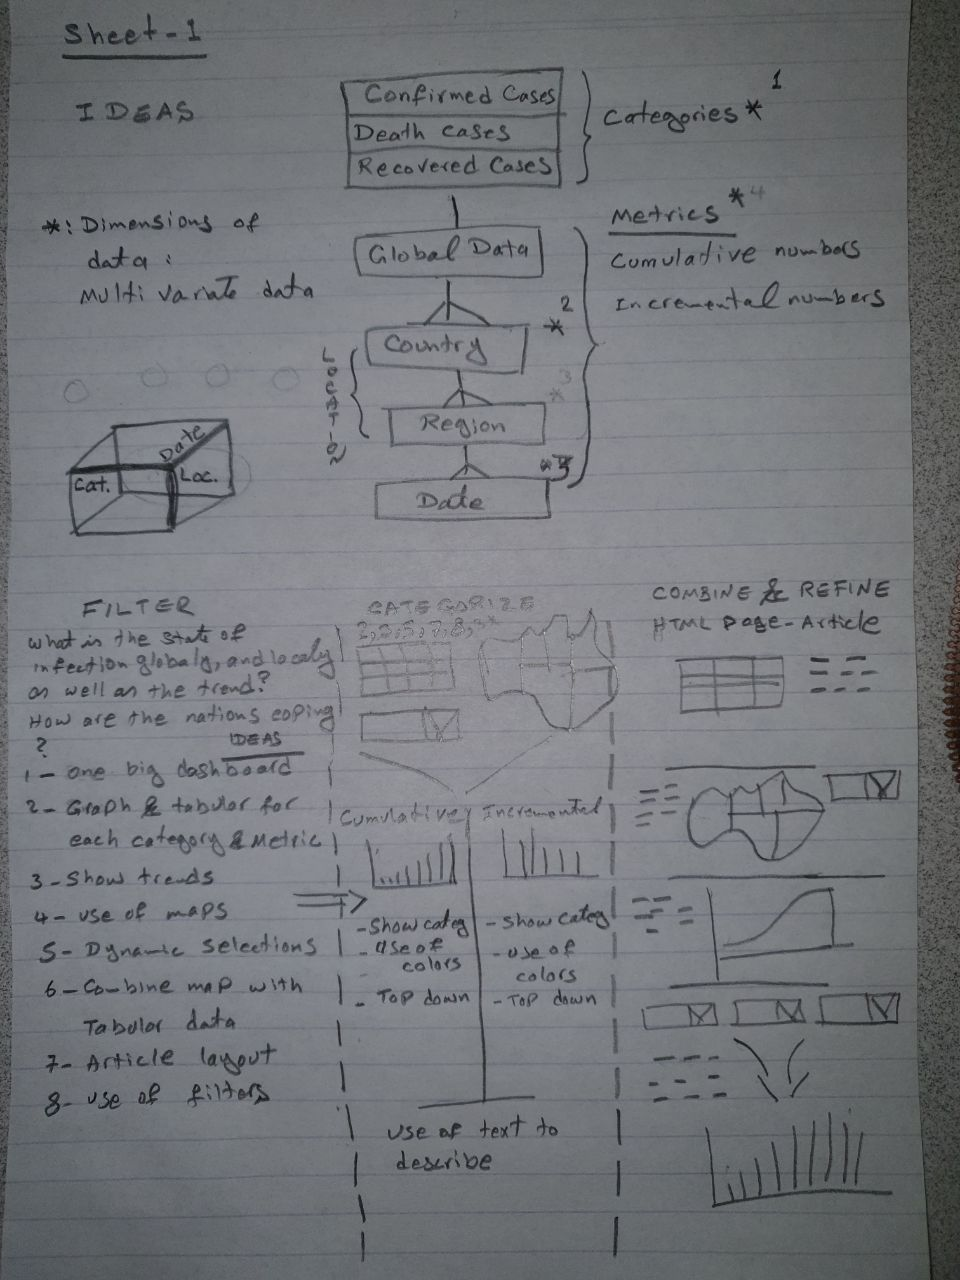 Sheet-1
IDEAS
Confirmed Cases
Death cases
Recovered Cases
Categories *1
*: Dimensions of
data:
Multi variate data
Global Data
Metrics *4
Cumulative numbers
Incremental numbers
*2
Country
LOCATION
*3
Region
Date
Cat.
Loc.
Date
FILTER
What is the state of
infection globaly, and localy
as well as the trend?
How are the nations coping
?
IDEAS
1- one big dashboard
2- Graph & tabular for
each category & Metric
3- Show trends
4- use of maps
5- Dynamic selections
6- Combine map with
Tabular data
7- Article layout
8- use of filters
CATEGORIZE
Cumulative
Incremental
- Show categ
- use of
colors
- Top down
- Show categ
- use of
colors
- Top down
use of text to
describe
COMBINE & REFINE
HTML Page-Article